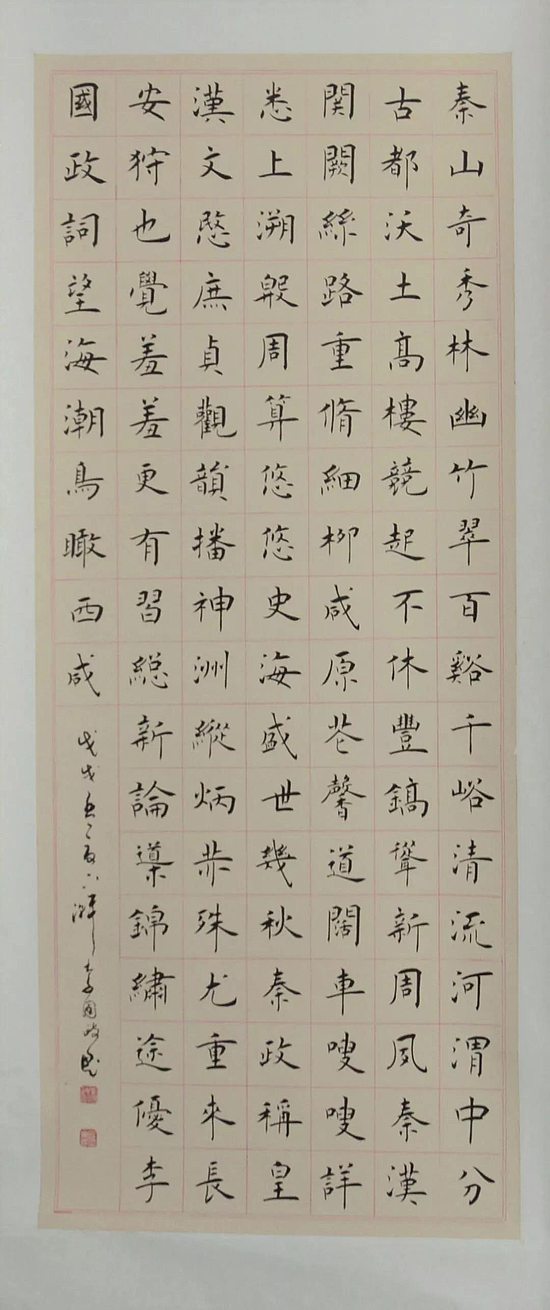 秦山奇秀林幽竹翠百谿千峪清流河渭中分
古都沃土髙樓競起不休豐鎬聳新周風秦漢
関闕絲路重脩細柳咸原馨道闊車嗖嗖詳
悉上溯殷周算悠悠史海盛世幾秋秦政稱皇
漢文愍庶貞觀韻播神洲縱炳殊尤重來長
安狩也覺羞羞更有習総新論導錦繡途優李
國政詞望海潮鳥瞰西咸
戊戌